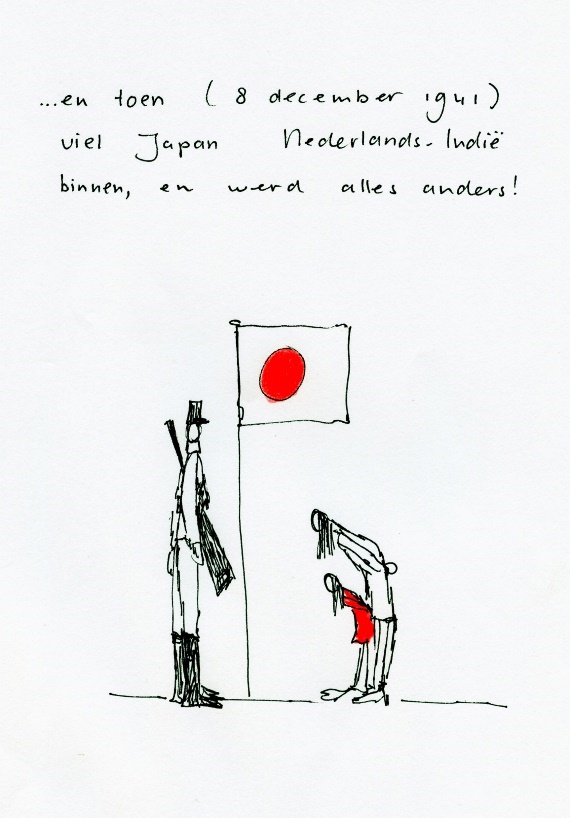 ...en toen ( 8 december 1941)
viel Japan Nederlands-Indië
binnen, en werd alles anders!